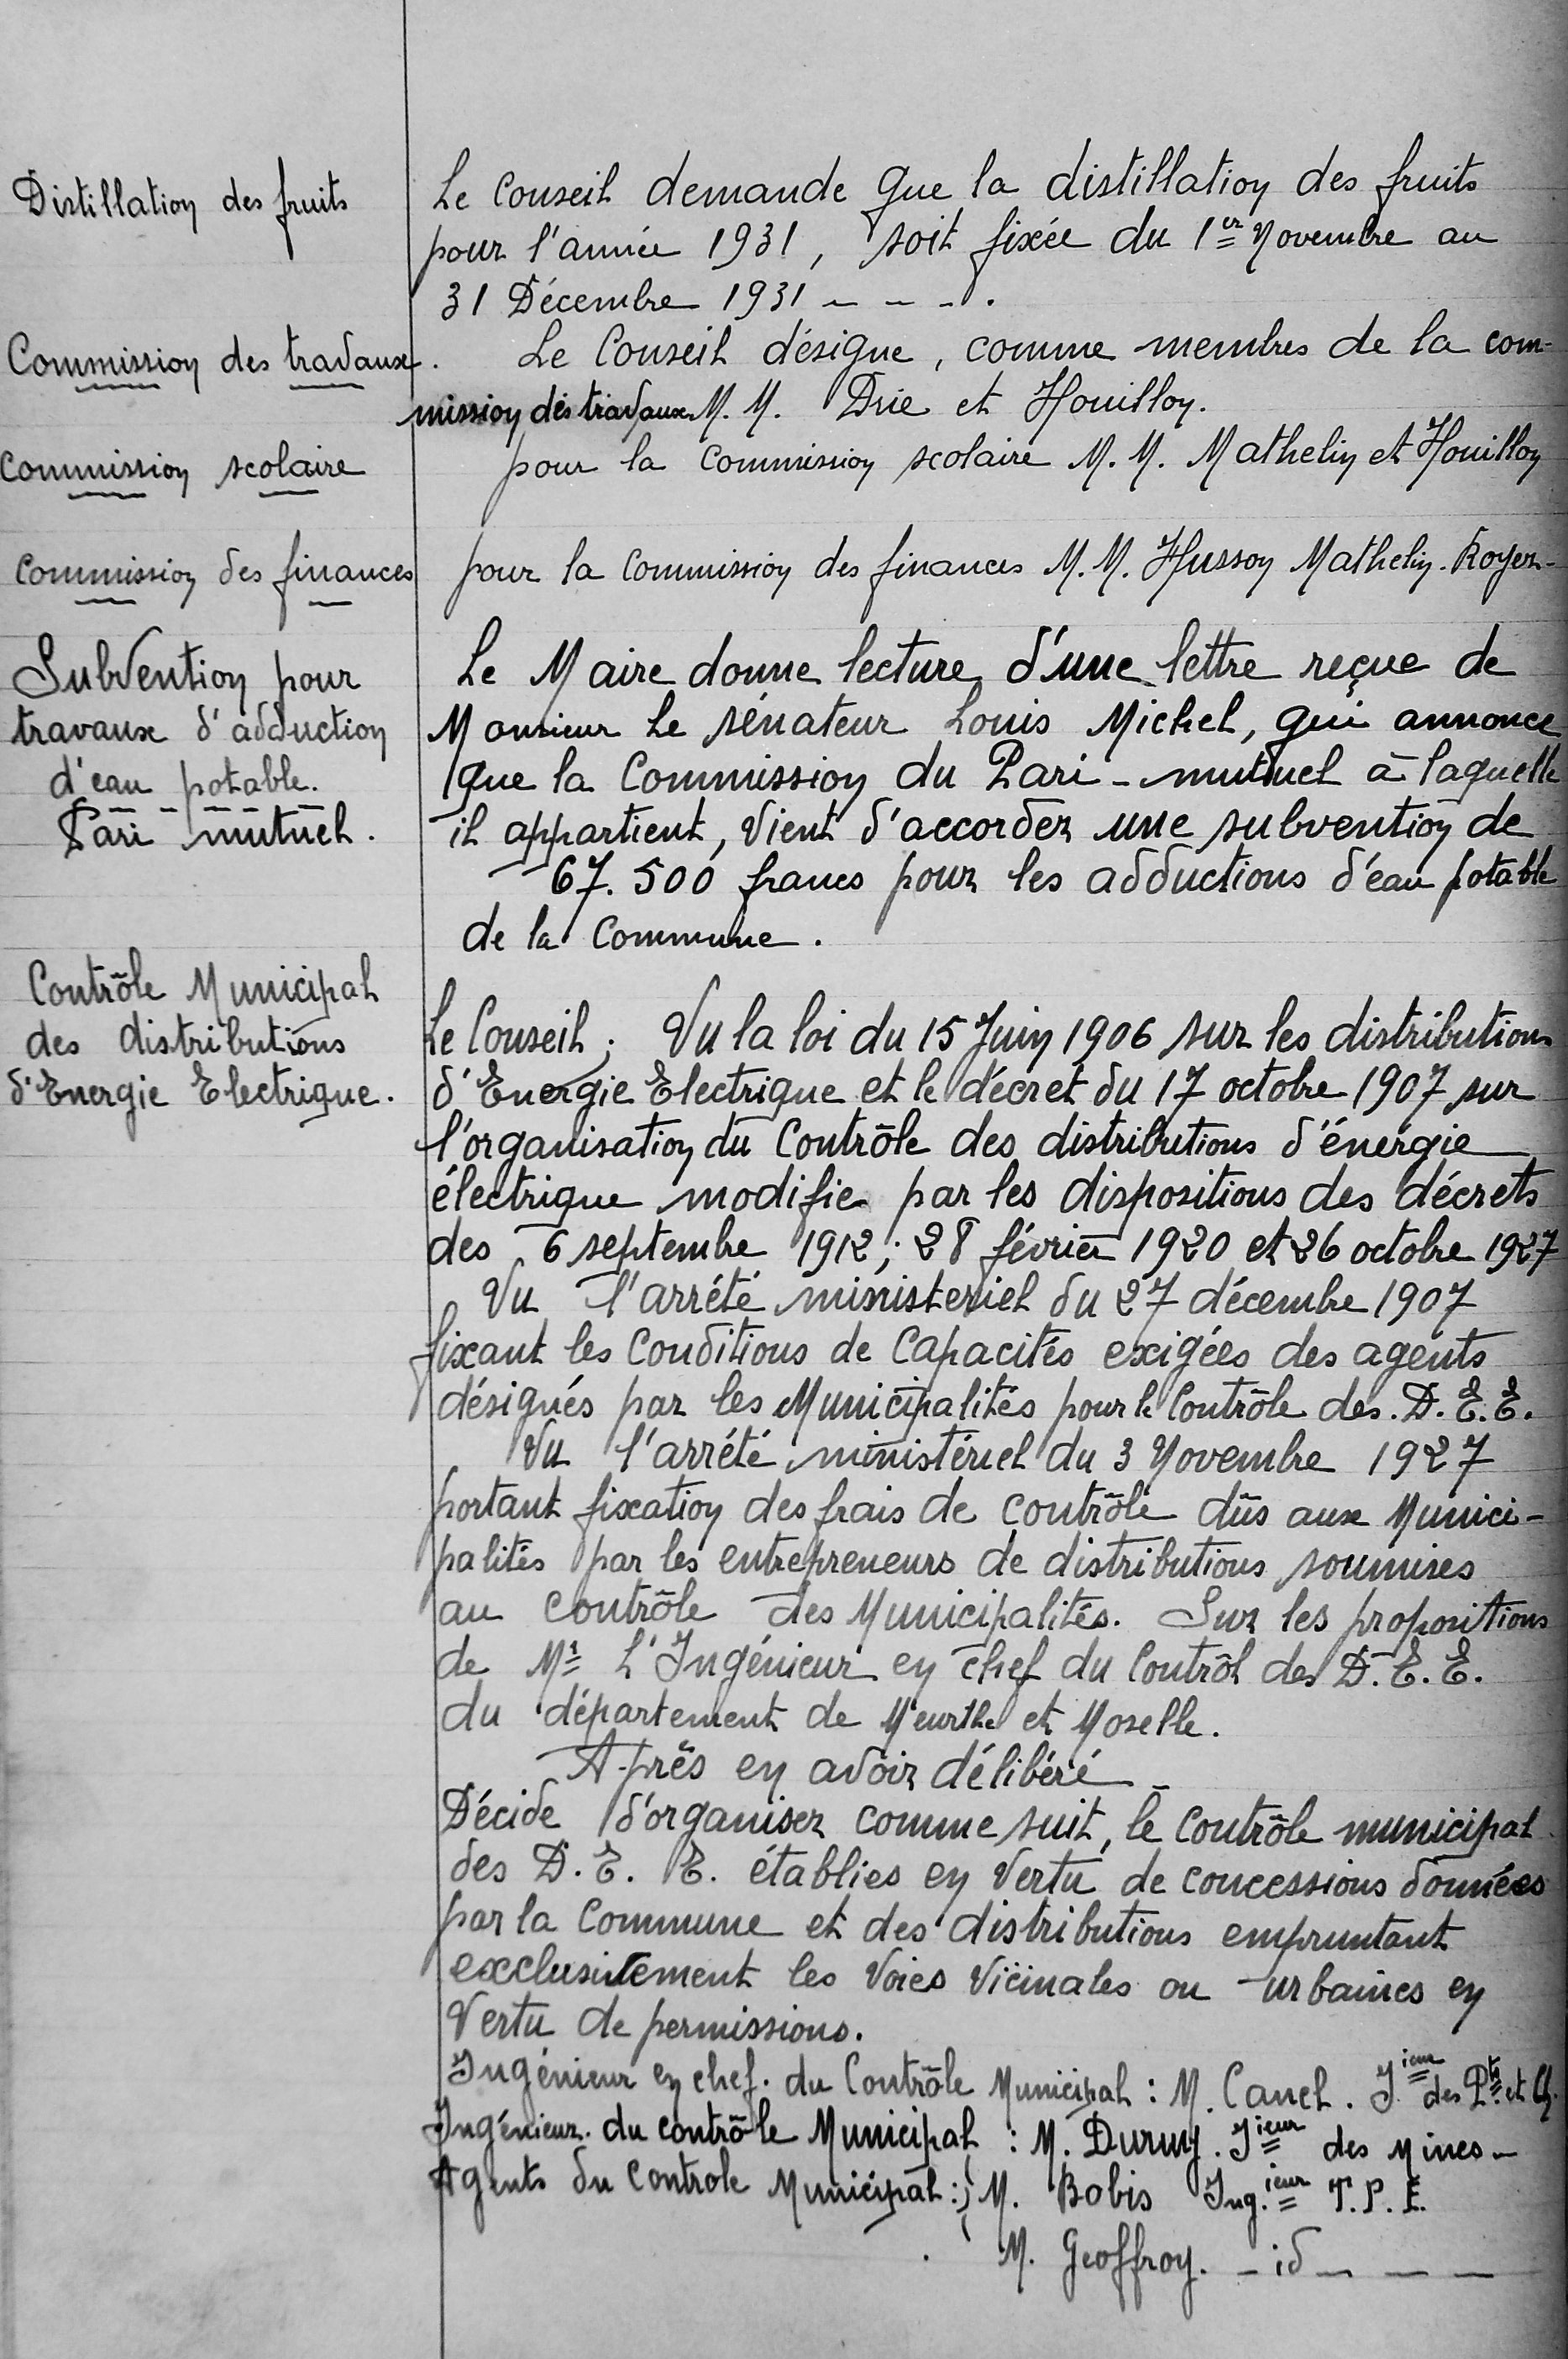 Distillation des fruits
Le Conseil demande que la distillation des fruits
pour l'année 1931, soit fixée du 1er Novembre au
31 Décembre 1931 - - - .
Commission des travaux.
Le Conseil désigne, comme membres de la com-
mission des travaux M. M. Drie et Houillon.
Commission scolaire
pour la Commission scolaire M. M. Mathelin et Houillon
Commission des finances
pour la Commission des finances M. M. Husson Mathelin. Royer-
Subvention pour
travaux d'adduction
d'eau potable.
Pari mutuel.
Le Maire donne lecture d'une lettre reçue de
Monsieur Le sénateur Louis Michel, qui annonce
que la Commission du Pari-mutuel à laquelle
il appartient, vient d'accorder une subvention de
67.500 francs pour les adductions d'eau potable
de la Commune.
Contrôle Municipal
des distributions
d'Energie Electrique.
Le Conseil; Vu la loi du 15 Juin 1906 sur les distributions
d'Energie Electrique et le décret du 17 octobre 1907 sur
l'organisation du Contrôle des distributions d'énergie
électrique modifie par les dispositions des décrets
des 6 septembre 1912; 28 février 1920 et 26 octobre 1927
Vu l'arrété ministeriel du 27 décembre 1907
fixant les Conditions de Capacités exigées des agents
désignés par les Municipalités pour le Contrôle des. D. E. E.
Vu l'arrété ministériel du 3 Novembre 1927
portant fixation des frais de contrôle dûs aux Munici-
palités par les entrepreneurs de distributions soumises
au contrôle des Municipalités. Sur les propositions
de Mr L'Ingénieur en chef du Contrôl des D. E. E.
du département de Meurthe et Moselle.
Après en avoir délibéré -
Décide d'organiser comme suit, le Contrôle municipal
des D. E. E. établies en vertu de concessions données
par la Commune et des distributions empruntant
exclusivement les Voies Vicinales ou urbaines en
Vertu de permissions.
Ingénieur en chef. du Contrôle Municipal : M. Canel. Iieur des Pts et Ch.
Ingénieur. du contrôle Municipal : M. Iieur des Mines -
Agents du Controle Municipal : M. Bobis Ing.ieur T. P. E.
M. Geoffroy. - id - - -